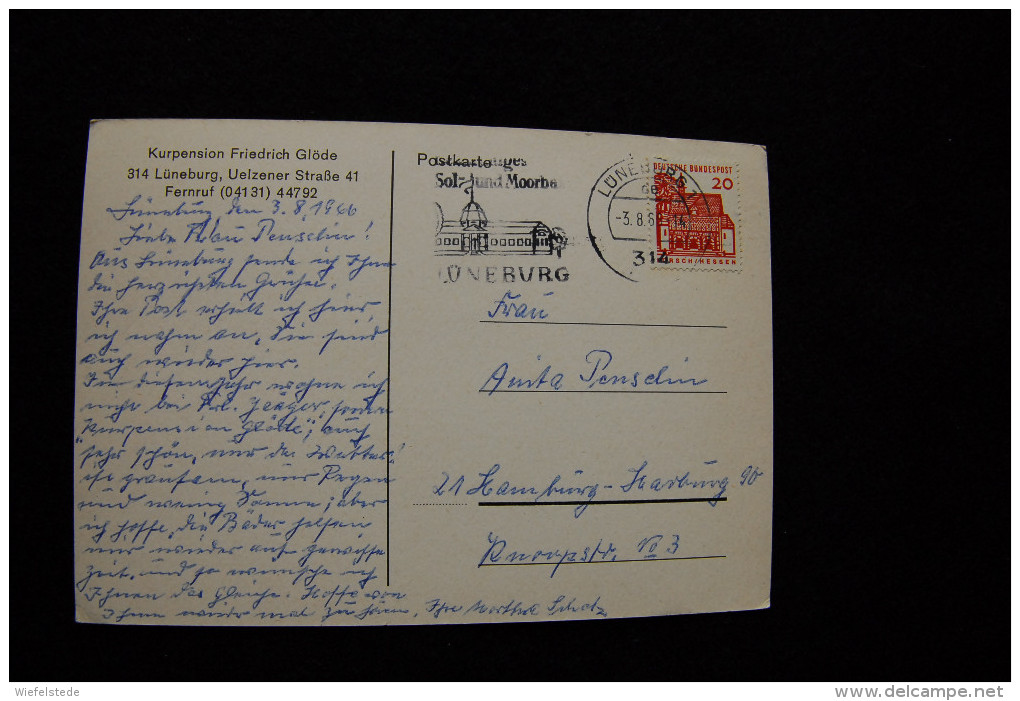 Kurpension Friedrich Glöde
314 Lüneburg, Uelzener Straße 41
Fernruf (04131) 44792
Lüneburg, den 3.8.1966
Liebe Frau Penselin!
Aus Lüneburg sende ich Ihnen
die herzlichsten Grüße.
Ihre Post erhielt ich hier,
ich nahm an, Sie sind
auch wieder hier.
In diesem Jahr wohne ich
nicht bei Frl. Jeäger, sondern
"Kurpension Glöde", auch
sehr schön, nur das Wetter
ist grausam, nur Regen
und wenig Sonne; aber
ich hoffe, die Bäder helfen
mir wieder auf gewisse
Zeit, und so wünsche ich
Ihnen das Gleiche. Hoffe von
Ihnen wieder mal zu hören, Ihre Scholz
Postkarte
Sol- und Moorba
LÜNEBURG
LÜNEBURG 1
-3.8.6
314
DEUTSCHE BUNDESPOST
20
RSCH/HESSEN
Frau
Anita Penselin
21 Hamburg-Harburg 90
Knoopstr. No 3
Wiefelstede
delcampe.net